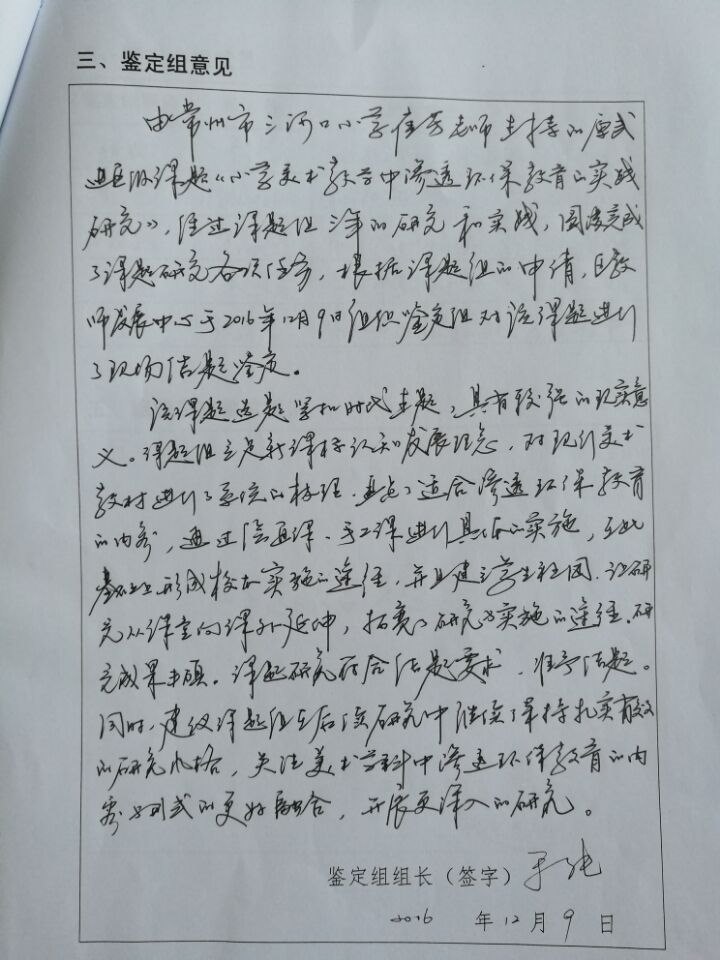 三、鉴定组意见
由常州市三河口小学崔 老师主持的原武
进区级课题《小学美术教学中渗透环保教育的实践
研究》，经过课题组三年的研究和实践，圆满完成
了课题研究各项任务，根据课题组的申请，区教
师发展中心于2016年12月9日组织鉴定组对该课题进行
了现场结题鉴定。
该课题选题紧扣时代主题，具有较强的现实意
义。课题组立足新课标认知发展理念，对现行美术
教材进行了系统的梳理， 了适合渗透环保教育
的内容，通过绘画课、手工课进行具体的实施，在此
基础上形成校本实施的途径，并且建立学生社团，让研
究从课堂向课外延伸，拓宽了研究与实施的途径。研
究成果丰硕。课题研究符合结题要求，准予结题。
同时，建议课题组在后续研究中继续保持扎实有效
的研究风格，关注美术学科中渗透环保教育的内
容与形式的更好融合，开展更深入的研究。
鉴定组组长（签字）
2016 年 12 月 9 日